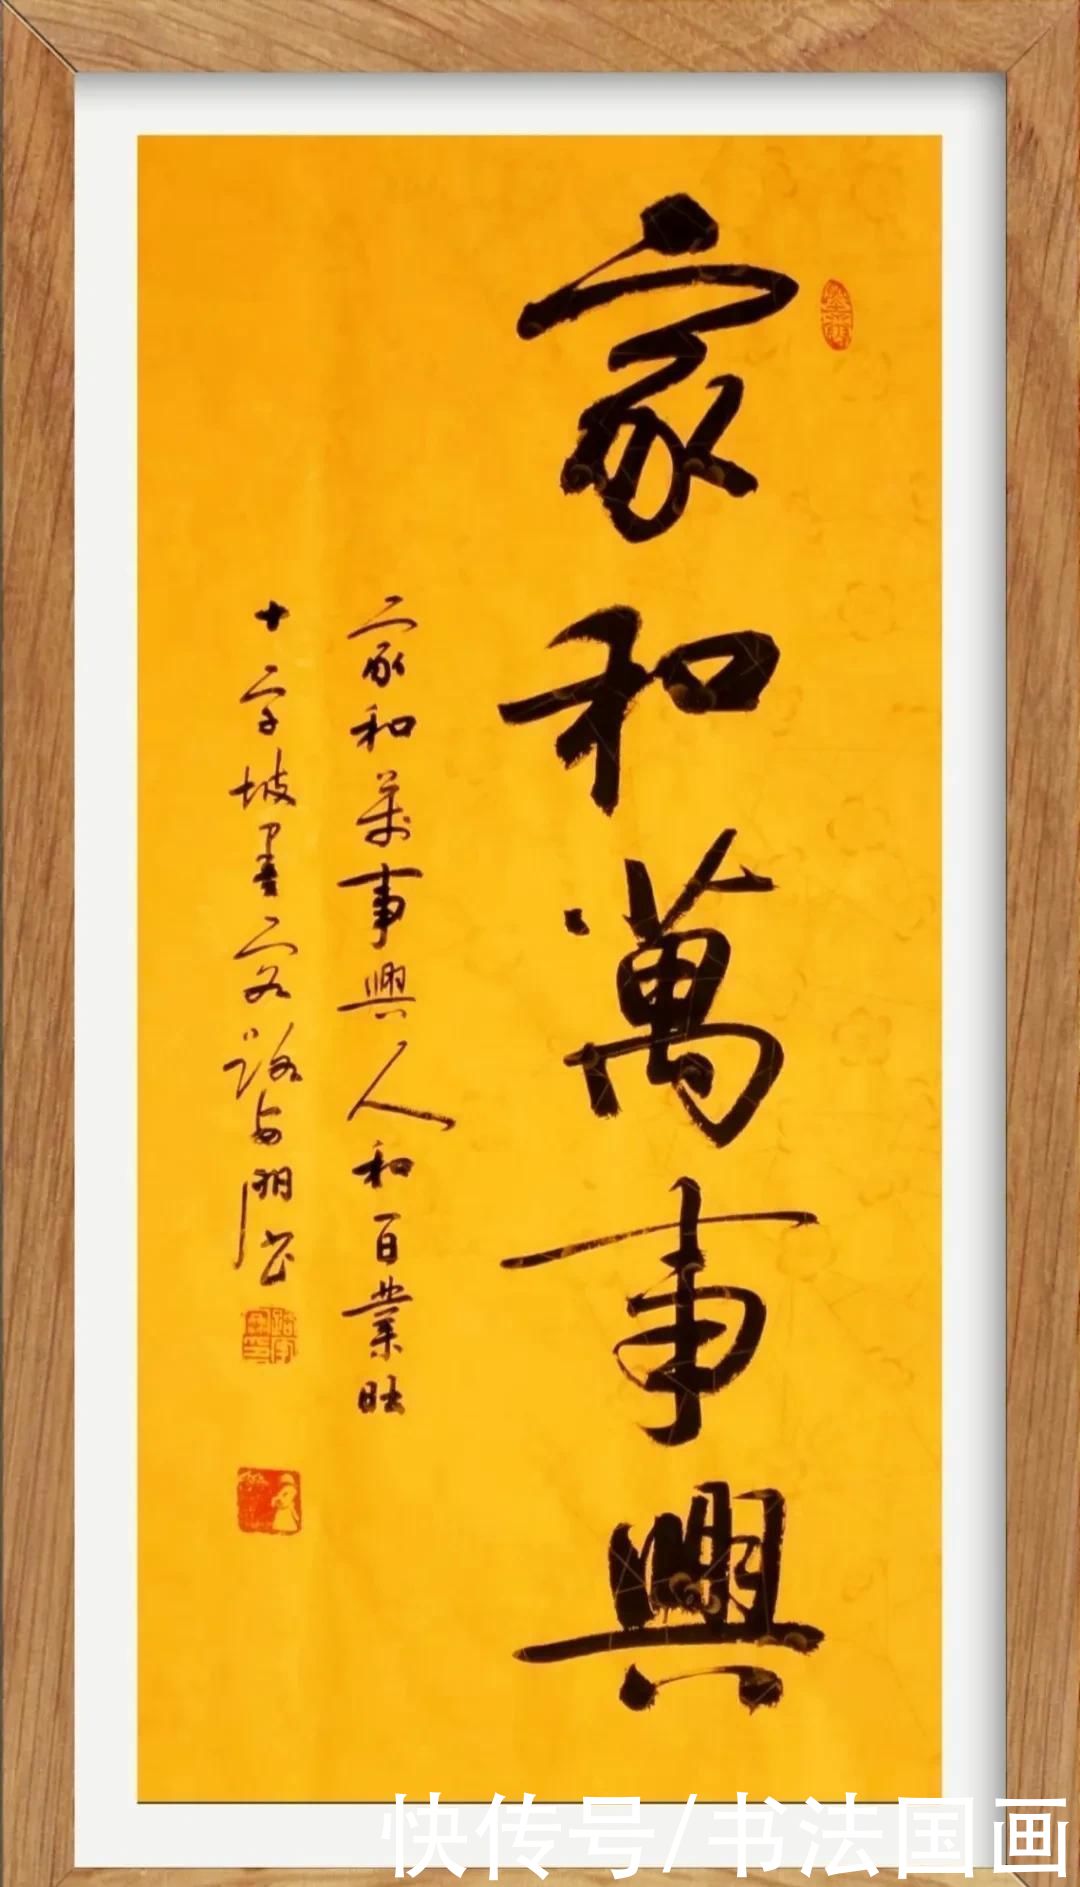 家和萬事興
家和萬事興人和百業旺
十字坡墨客路安朋书
快传号/书法国画